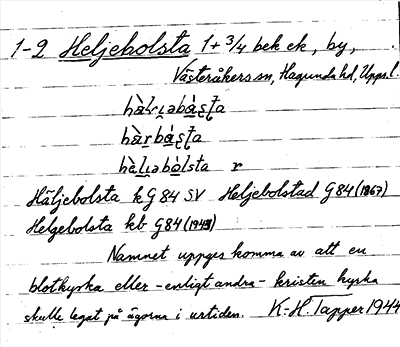 1-2 Heljebolsta 1 + 3/4 bek ek, by,
Västeråkers sn, Hagunda hd, Upps. l.
hälɩ̯əbȧ̀sta
hàrbȧ̀sta
hèlɩ̯əbòlsta r
Häljebolsta kG 84 SV Heljebolstad G 84 (1867)
Helgebolsta kb G 84 (1943)
Namnet uppges komma av att en
blotkyrka eller - enligt andra - kristen kyrka
skulle legat på ägorna i urtiden. K.-H. Tapper 1944